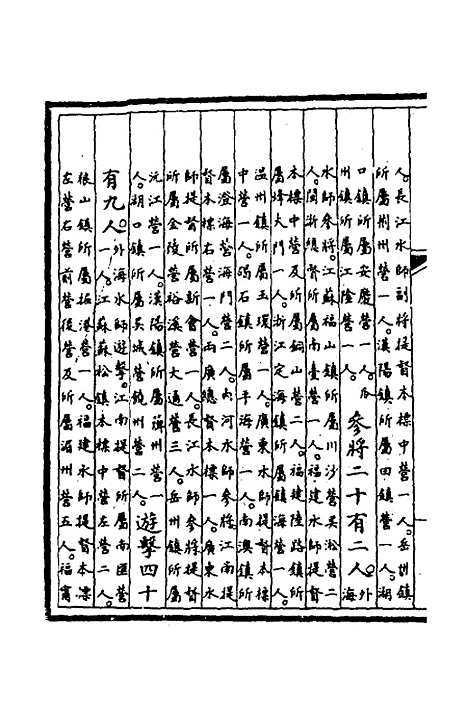 人。長江水師副將提督本標中營一人。岳州鎮
所屬荆州營一人。漢陽鎮所屬田鎮營一人。湖
口鎮所屬安慶營一人。瓜
州鎮所屬江陰營一人。參將二十有二人。外海
水師參將。江蘇福山鎮所屬川沙營吳淞營二
人。閩浙總督所屬南臺營一人。福建水師提督
本標中營及所屬銅山營二人。福建陸路鎮所
屬烽火門一人。浙江定海鎮所屬鎮海營一人。
溫州鎮所屬玉環營一人。廣東水師提督本標
中營一人。碣石鎮所屬平海營一人。南澳鎮所
屬澄海營海門營二人。內河水師參將江南提
督本標右營一人。兩廣總督本標一人。廣東水
師提督所屬新會營一人。長江水師參將提督
所屬金陵營裕溪營大通營三人。岳州鎮所屬
沅江營一人。漢陽鎮所屬蘄州營一
人。湖口鎮所屬吳城營饒州營二人。遊擊四十
有九人。外海水師遊擊。江南提督所屬南匯營
一人。江蘇蘇松鎮本標中營左營二人。
狼山鎮所屬掘港營一人。福建水師提督本標
左營右營前營後營及所屬湄州營五人。福甯